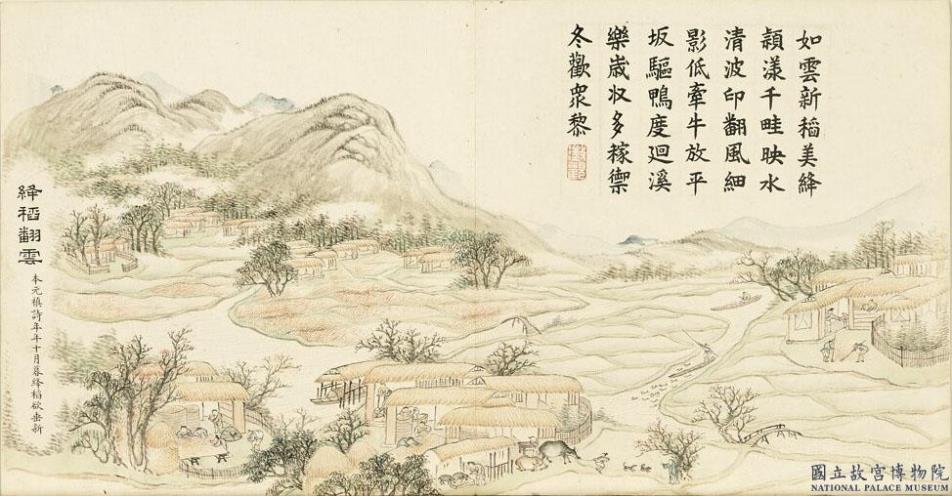 如雲新稻美絳
穎漾千畦映水
清波印翻風細
影低牽牛放平
坂驅鴨度廻溪
樂歳收多稼禦
冬歡眾黎
絳稻翻雲
本元稹詩年年十月暮絳稻欲垂新
國立故宮博物院
NATIONAL PALACE MUSEUM